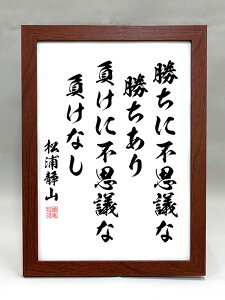 勝ちに不思議な
勝ちあり
負けに不思議な
負けなし
松浦静山